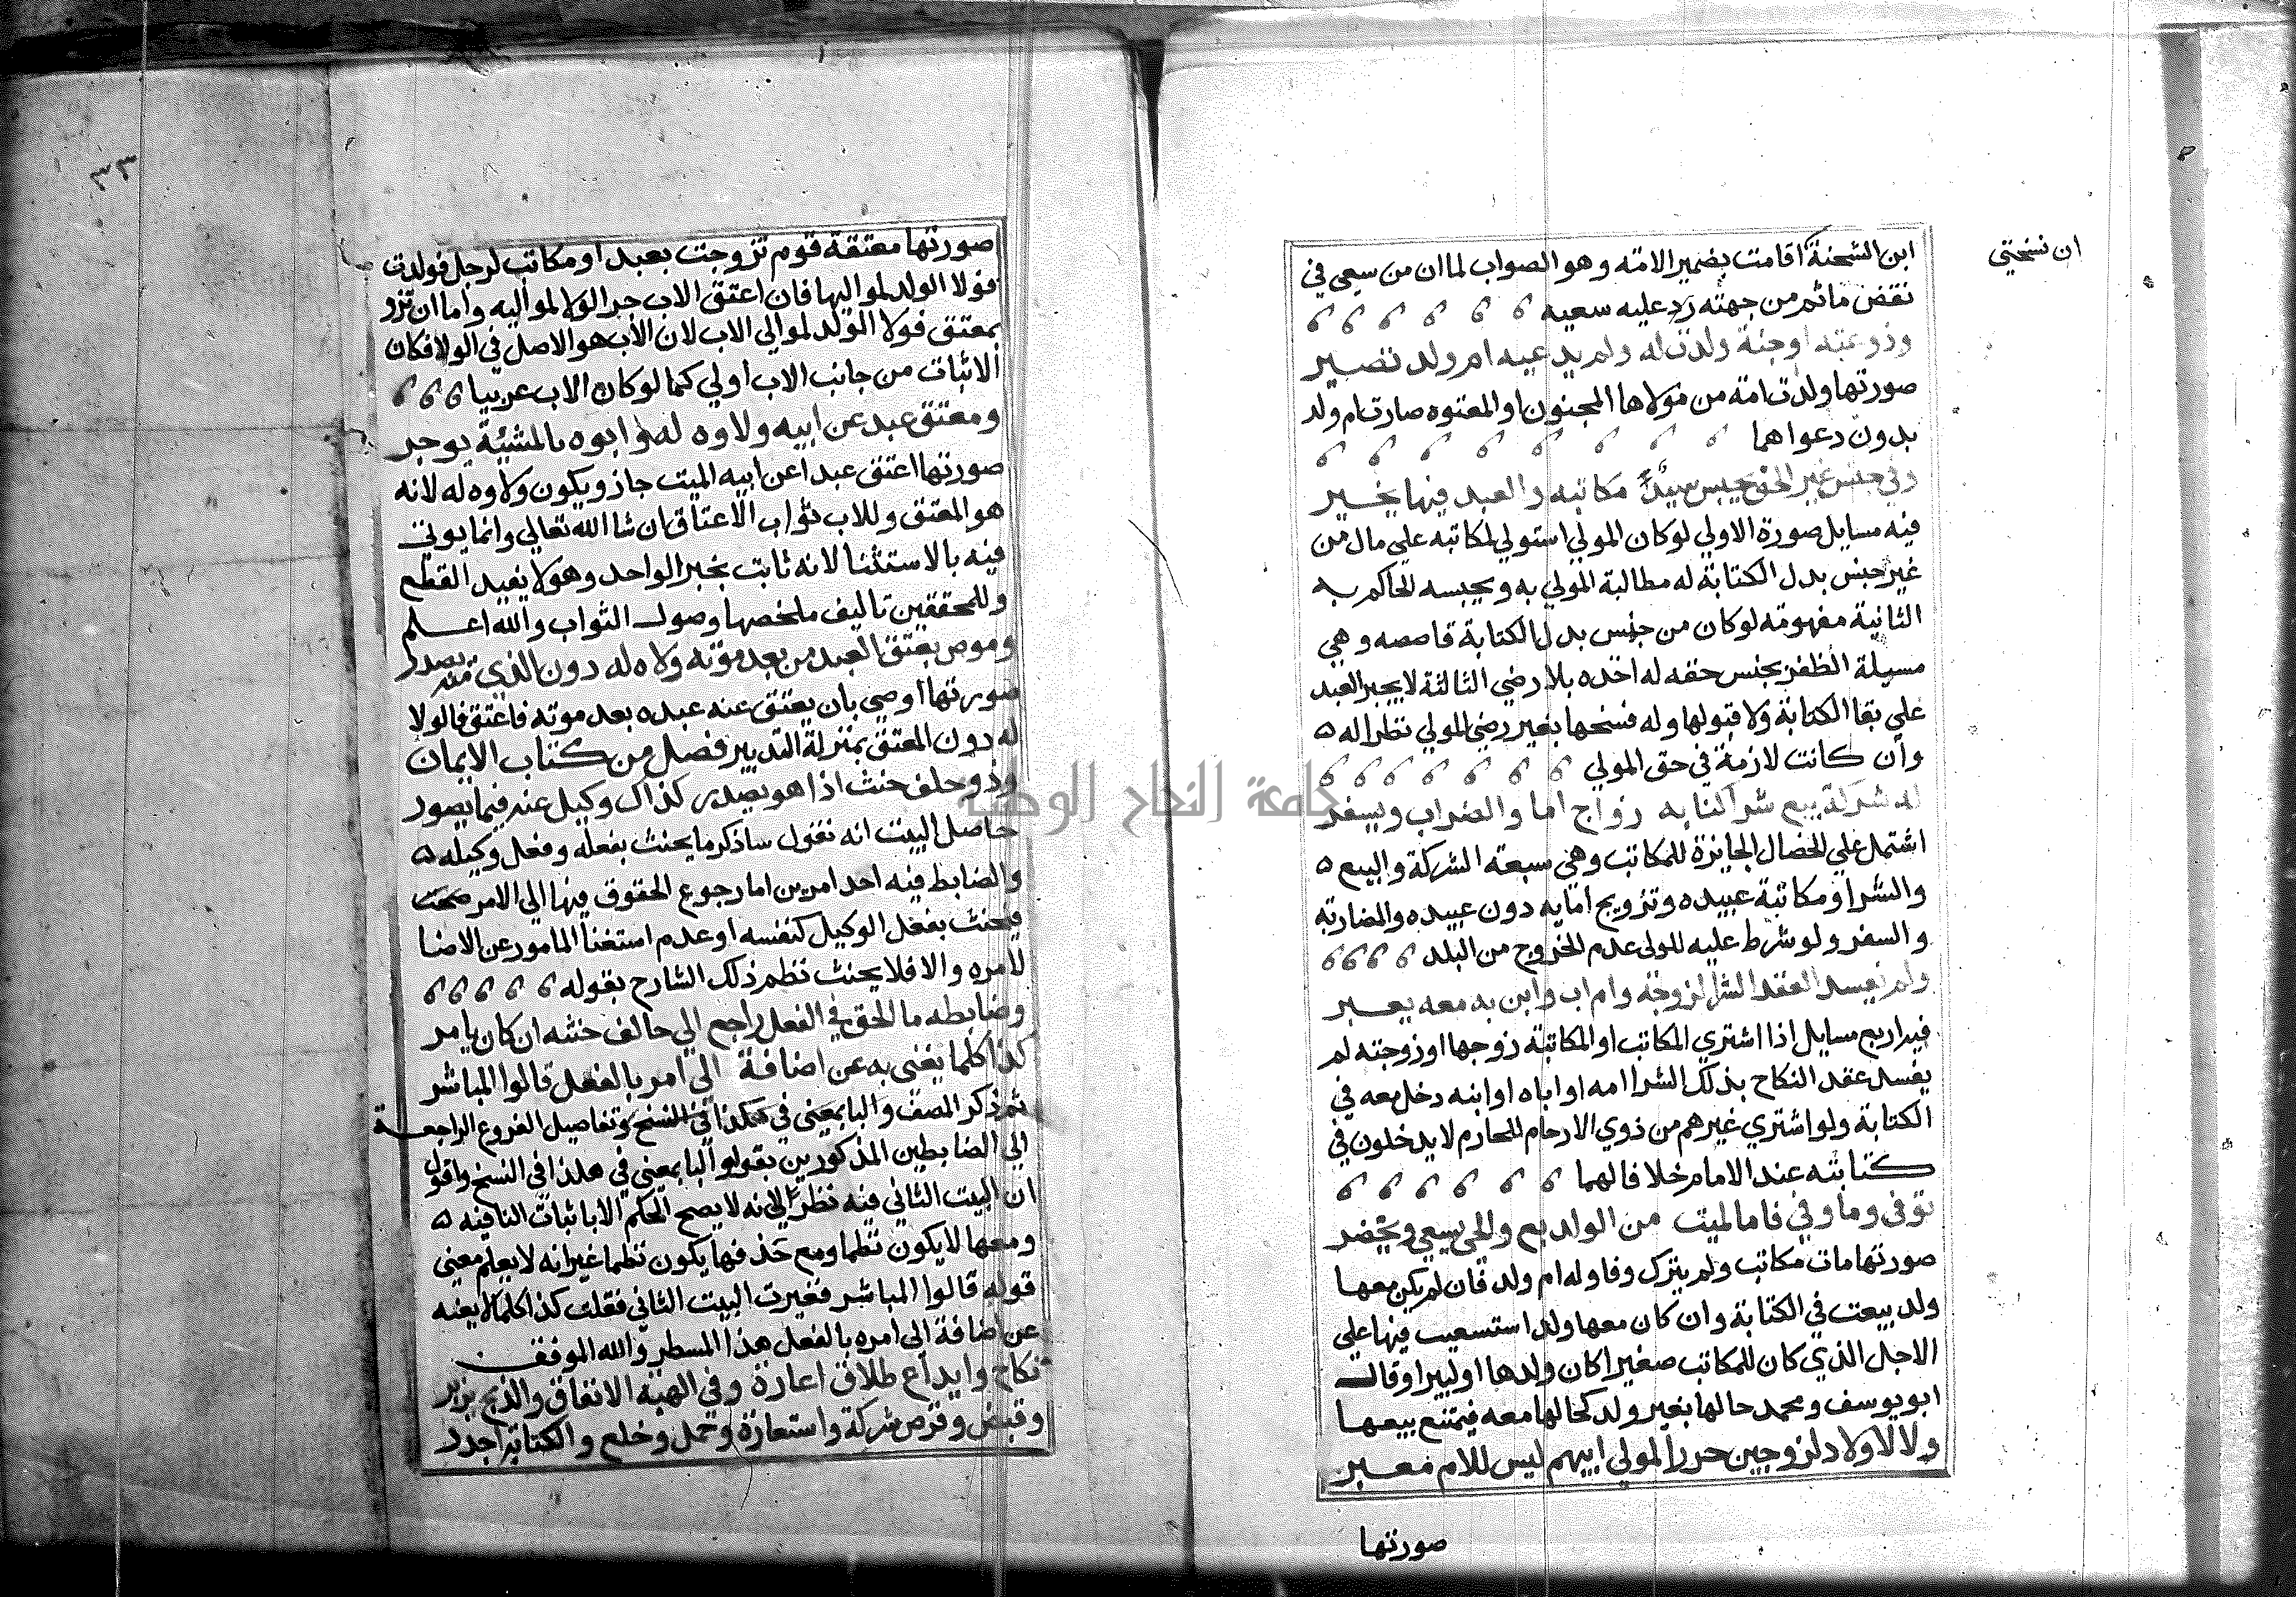 ان نسختي
ابن الشحنة اقامت بضمير الامة وهو الصواب لما ان من سعى في
نقض ما تم من جهته رد عليه سعيه
وذو عته اوجنة ولدت له ولم يدعيه ام ولد تصير
صورتها ولدت امة من مولاها المجنون او المعتوه صارت ام ولد
بدون دعواهما
وفي جنس غير الحق حبس سيد مكاتبه والعبد فيها يخير
فيه مسايل صورة الاولي لو كان المولي استولي لمكاتبه علي مال من
غير جنس بدل الكتابة له مطالبة المولي به ويحبسه الحاكم به
الثانية مفهومة لو كان من جنس بدل الكتابة قاصصه وهي
مسيلة الظفر بجنس حقه له اخذه بلا رضي الثالثة لا يجبر العبد
علي بقا الكتابة ولا قبولها وله فسخها بغير رضي المولي نظرا له ه
وان كانت لازمة في حق المولي
له شركة بيع شرا كتابه زواج اما والضراب ويسفر
اشتمل علي الخصال الجايزة للمكاتب وهي سبعة الشركة والبيع ه
والشرا ومكاتبة عبيده وتزويج امايه دون عبيده والمضاربة
والسفر ولو شرط عليه المولى عدم الخروج من البلد
ولم يفسد العقد الشرا لزوجة وام اب وابن به معه يعبر
فيه اربع مسايل اذا اشتري المكاتب او المكاتبة زوجها او زوجته لم
يفسد عقد النكاح بذلك الشرا امه او اباه او ابنه دخل معه في
الكتابة ولو اشتري غيرهم من ذوي الارحام المحارم لا يدخلون في
كتابته عند الامام خلافا لهما
توفى وما وفي فاما لميت من الولد بيع والحي يسعي ويحضر
صورتها مات مكاتب ولم يترك وفا وله ام ولد فان لم يكن معها
ولد بيعت في الكتابة وان كان معها ولد استسعيت فيها علي
الاجل الذي كان للمكاتب صغيرا كان ولدها او كبيرا وقال
ابو يوسف ومحمد حالها بغير ولد كحالها معه فيمتنع بيعها
ولا لاولاد لزوجين حررا لمولي ابيهم ليس للام معبر
صورتها
٣٣
صورتها معتقة قوم تزوجت بعبد او مكاتب لرجل فولدت
فولا الولد لمواليها فان اعتق الاب جر الولا لمواليه واما ان تزو
بمعتق فولا الولد لموالي الاب لان الاب هو الاصل في الولا فكان
الاثبات من جانب الاب اولي كما لو كان الاب عربيا
ومعتق عبد عن ابيه ولاوه له وابوه بالمشيئة يوجر
صورتها اعتق عبدا عن ابيه الميت جاز ويكون ولاوه له لانه
هو المعتق وللاب ثواب الاعتاق ان شا الله تعالي وانما يوتي
فيه بالاستثنا لانه ثابت بخبر الواحد وهو لا يفيد القطع
وللمحققين تاليف ملخصها وصول الثواب والله اعلم
وموص بعتق العبد من بعد موته ولاه له دون الذي منه يصدر
صورتها اوصي بان يعتق عنه عبده بعد موته فاعتق فالولا
له دون المعتق بمنزلة التدبير فصل من كتاب الايمان
وذو حلف حنث اذا هو يصدر كذاك وكيل عنه فيما يصور
حاصل البيت انه نقول ساذكر ما يحنث بفعله وفعل وكيله ه
والضابط فيه احد امرين اما رجوع الحقوق فيها الي الامر
فيحنث بفعل الوكيل كنفسه او عدم استغنا المامور عن الاضا
لامره والا فلا يحنث نظم ذلك الشارح بقوله
وضابطه ما الحق في الفعل راجع الي حالف حنثه ان كان يامر
كذا كلما يغنى به عن اضافة الي امر بالفعل قالوا المباشر
ثم ذكر المصنف والبا بمعني في هكذا في النسخ وتفاصيل الفروع الراجعة
الي الضابطين المذكورين بقوله البا بمعني في هكذا في النسخ واقول
ان البيت الثاني فيه نظر لانه لا يصح الحكم الا باثبات النافيه ه
ومعها لا يكون نظما ومع حذفها يكون نظما غير انه لا يعلم معني
قوله قالوا المباشر فغيرت البيت الثاني فقلت كذا كلما لا يغنه
عن اضافة الي امره بالفعل هذا المسطر والله الموفق
نكاح وايداع طلاق اعارة وفي الهبة الانفاق والذبح يزبر
وقبض وقرض شركة واستعارة وحمل وخلع والكتابة اجدر